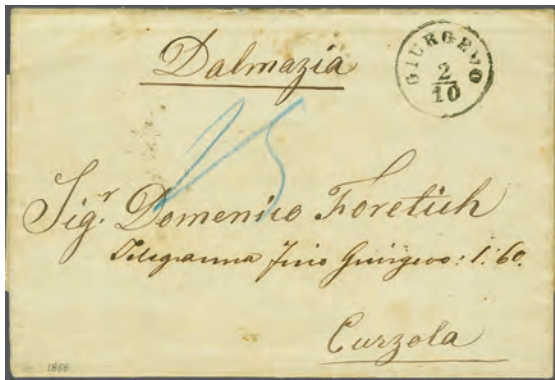 Dalmazia
GIURGEVO
2
10
15
Sigr. Domenico Foretich
Telegramma fino Giurgevo: 1.60.
Curzola
1866